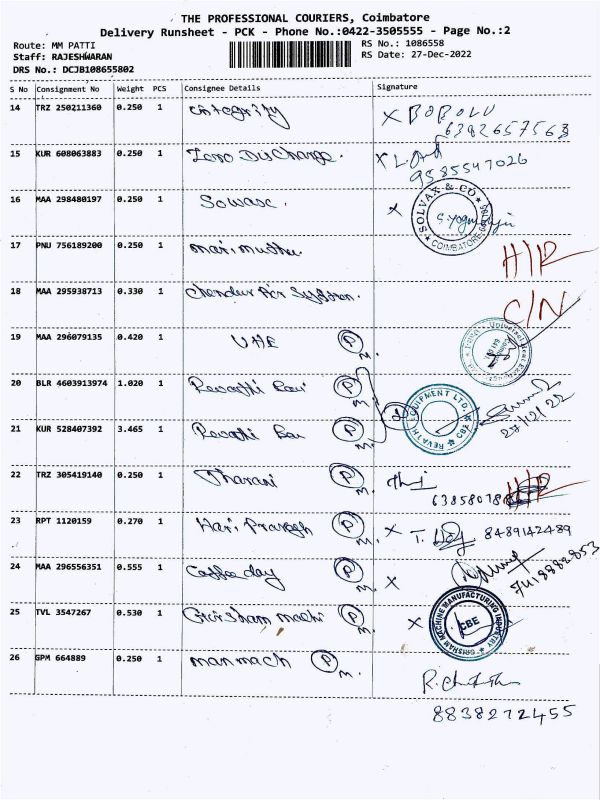 THE PROFESSIONAL COURIERS, Coimbatore
Delivery Runsheet - PCK - Phone No.:0422-3505555 - Page No.:2
Route: MM PATTI
RS No.: 1086558
Staff: RAJESHWARAN
RS Date: 27-Dec-2022
DRS No.: DCJB108655802
S No Consignment No Weight PCS Consignee Details Signature
14 TRZ 250211360 0.250 1 integrity X BOBOLU
6382657563
15 KUR 608063883 0.250 1 Zero DisCharge. X
9585547026
16 MAA 298480197 0.250 1 Sowasc. X SOLVAX & CO COIMBATORE
17 PNU 756189200 0.250 1 mari muthu. H/R
18 MAA 295938713 0.330 1 Chendur Air System. C/N
19 MAA 296079135 0.420 1 UHE P m.
20 BLR 4603913974 1.020 1 Revathi P m.
REVATHI EQUIPMENT LTD. CBE
27/12/22
21 KUR 528407392 3.465 1 Revathi P m.
22 TRZ 305419140 0.250 1 Tharani P m. H/R
23 RPT 1120159 0.270 1 Hari Prakash P m. X 8489142489
24 MAA 296556351 0.555 1 Coffee day P m. X
25 TVL 3547267 0.530 1 Grisham machi P m. X GRISHAM MACHINE MANUFACTURING INDUSTRY CBE
26 GPM 664889 0.250 1 manmach P m.
8838272455